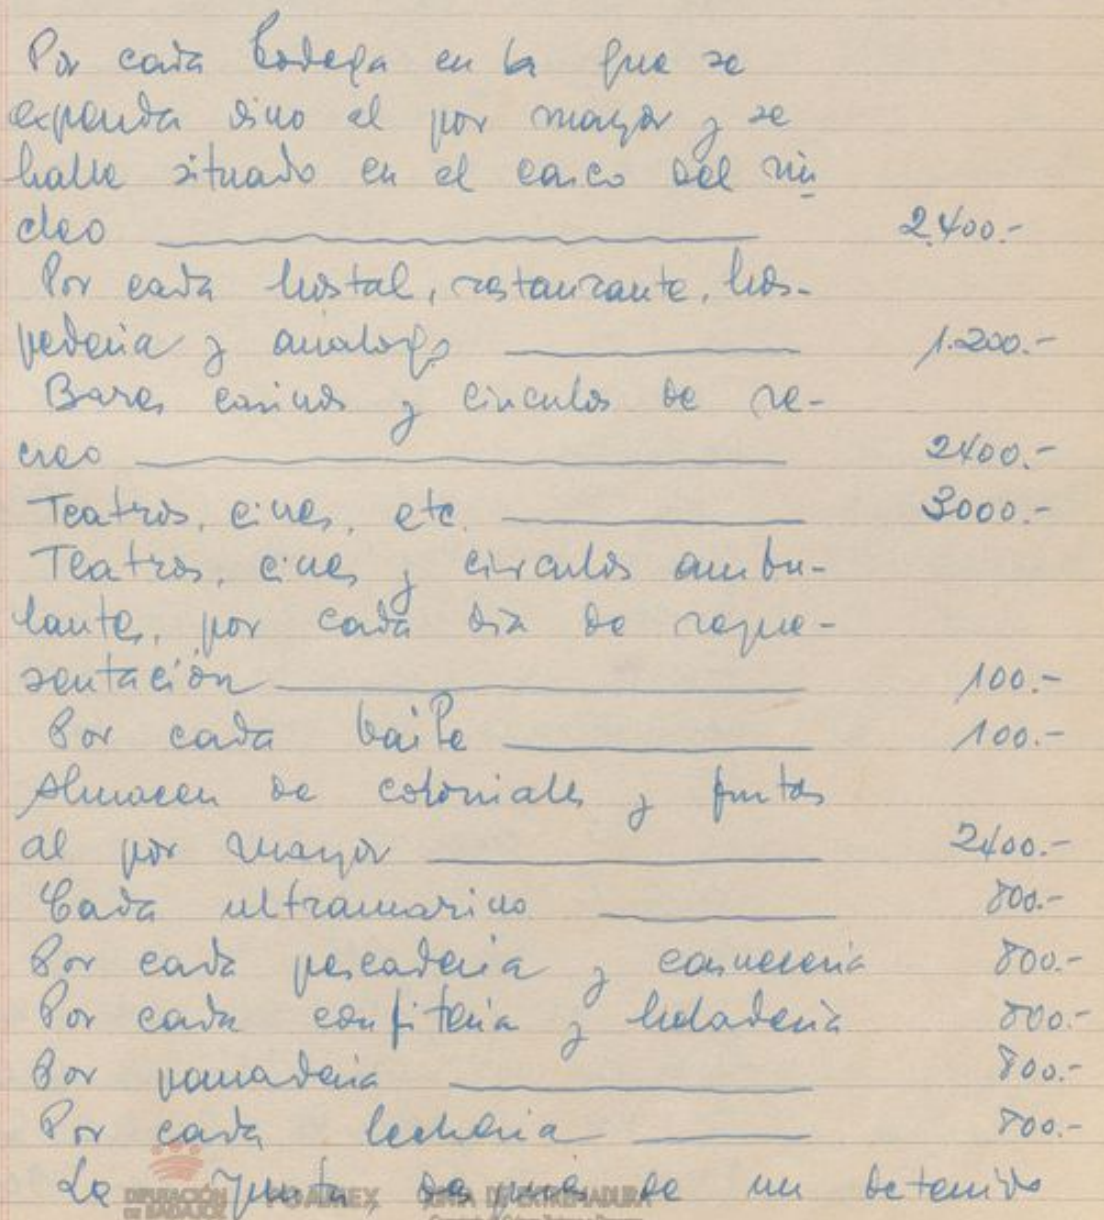 Por cada bodega en la que se
expenda vino al por mayor y se
halle situado en el casco del nú
cleo 2.400.-
Por cada hostal, restaurante, hos-
pederia y analogo 1.200.-
Bares casinos y circulos de re-
creo 2400.-
Teatros, cines, etc. 3000.-
Teatros, cines y circulos ambu-
lantes, por cada dia de repre-
sentación 100.-
Por cada baile 100.-
Almacen de coloniales y frutas
al por mayor 2400.-
Cada ultramarino 800.-
Por cada pescaderia y carniceria 800.-
Por cada confiteria y heladeria 800.-
Por panaderia 800.-
Por cada lecheria 800.-
La Junta después de un detenido
DIPUTACIÓN DE BADAJOZ JUNTA DE EXTREMADURA